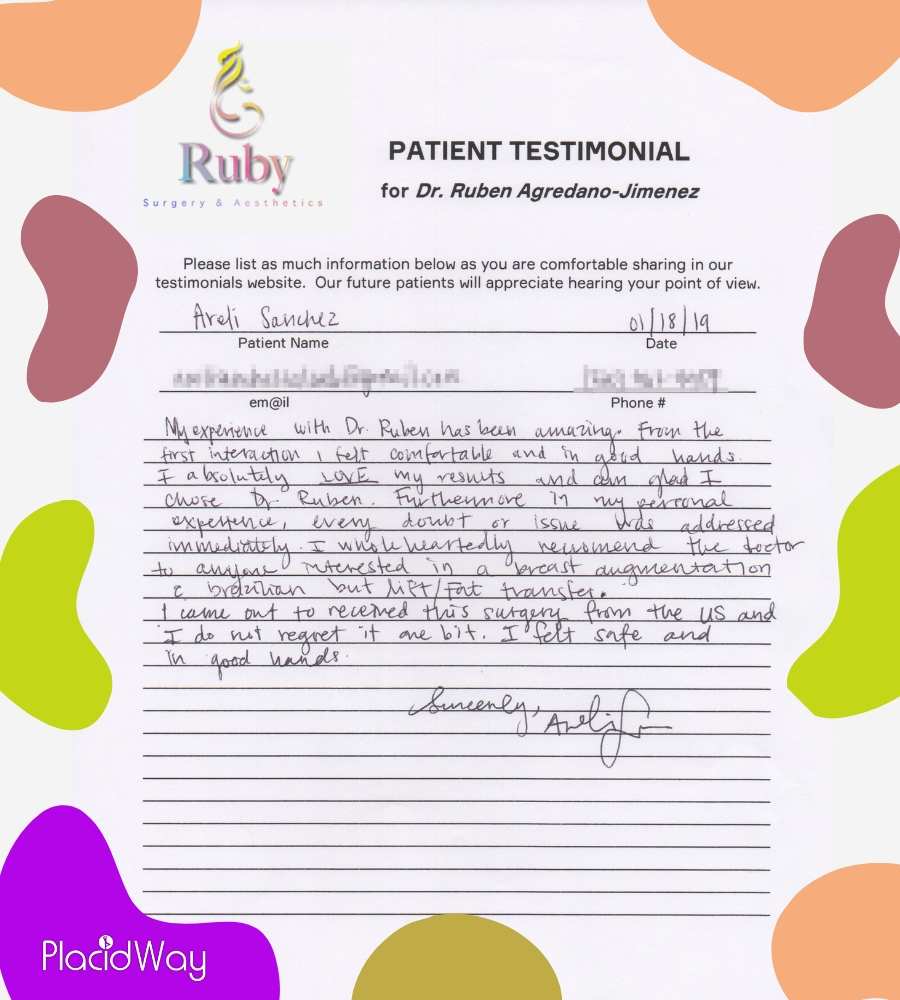 Ruby
Surgery & Aesthetics
PATIENT TESTIMONIAL
for Dr. Ruben Agredano-Jimenez
Please list as much information below as you are comfortable sharing in our
testimonials website. Our future patients will appreciate hearing your point of view.
Areli Sanchez 01/18/19
Patient Name Date
em@il Phone #
My experience with Dr. Ruben has been amazing. From the
first interaction I felt comfortable and in good hands.
I absolutely LOVE my results and am glad I
chose Dr. Ruben. Furthermore in my personal
experience, every doubt or issue was addressed
immediately. I wholeheartedly recommend the doctor
to anyone interested in a breast augmentation
& brazilian but lift/fat transfer.
I came out to received this surgery from the US and
I do not regret it one bit. I felt safe and
in good hands.
Sincerely, Areli
PlacidWay